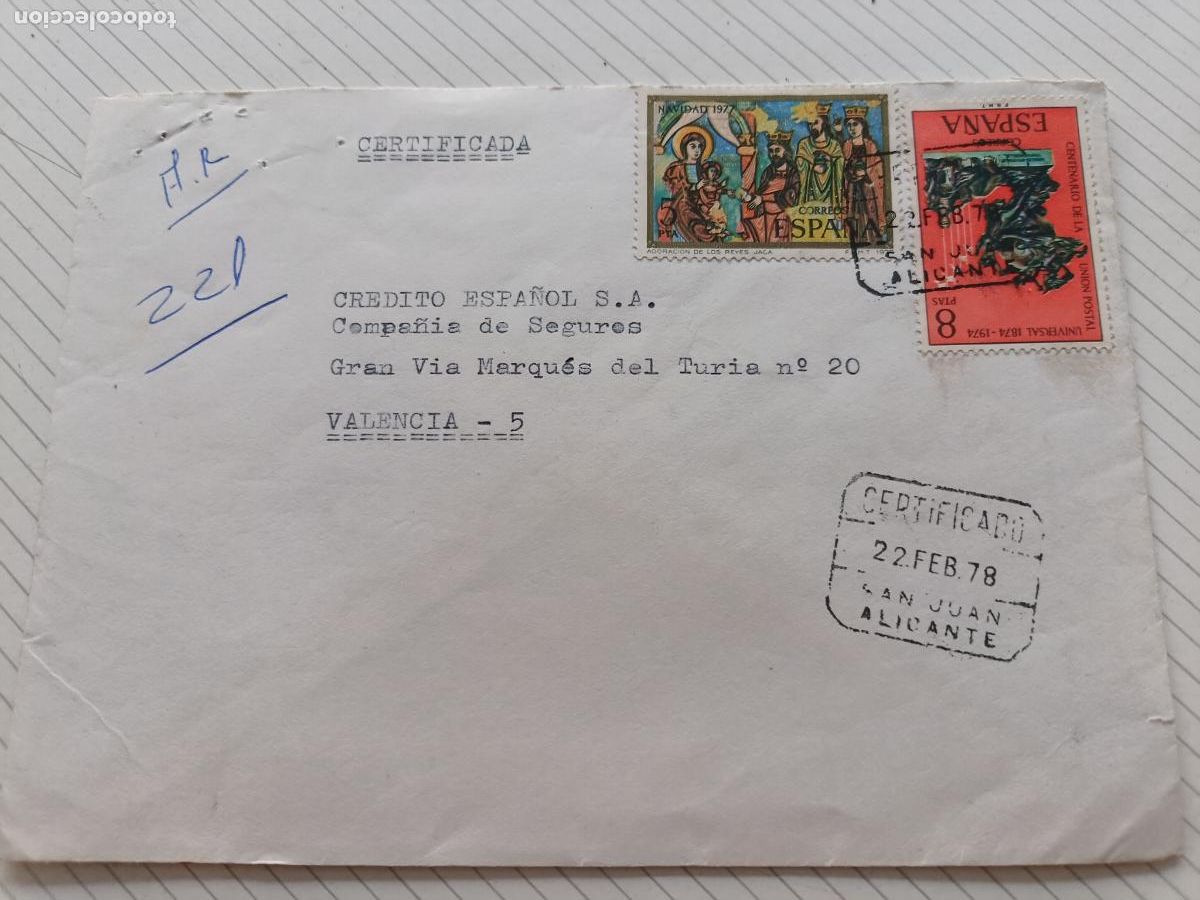 todocoleccion
CERTIFICADA
A.R
221
CREDITO ESPAÑOL S.A.
Compañia de Seguros
Gran Via Marqués del Turia nº 20
VALENCIA - 5
NAVIDAD 1977
5
PTA
CORREOS
ESPAÑA
ADORACION DE LOS REYES JACA
F.N.M.T.
8
PTAS
CENTENARIO DE LA UNION POSTAL UNIVERSAL 1874-1974
CORREOS
ESPAÑA
F.N.M.T.
22.FEB.7
SAN JU
ALICANTE
CERTIFICADO
22.FEB.78
SAN JUAN
ALICANTE